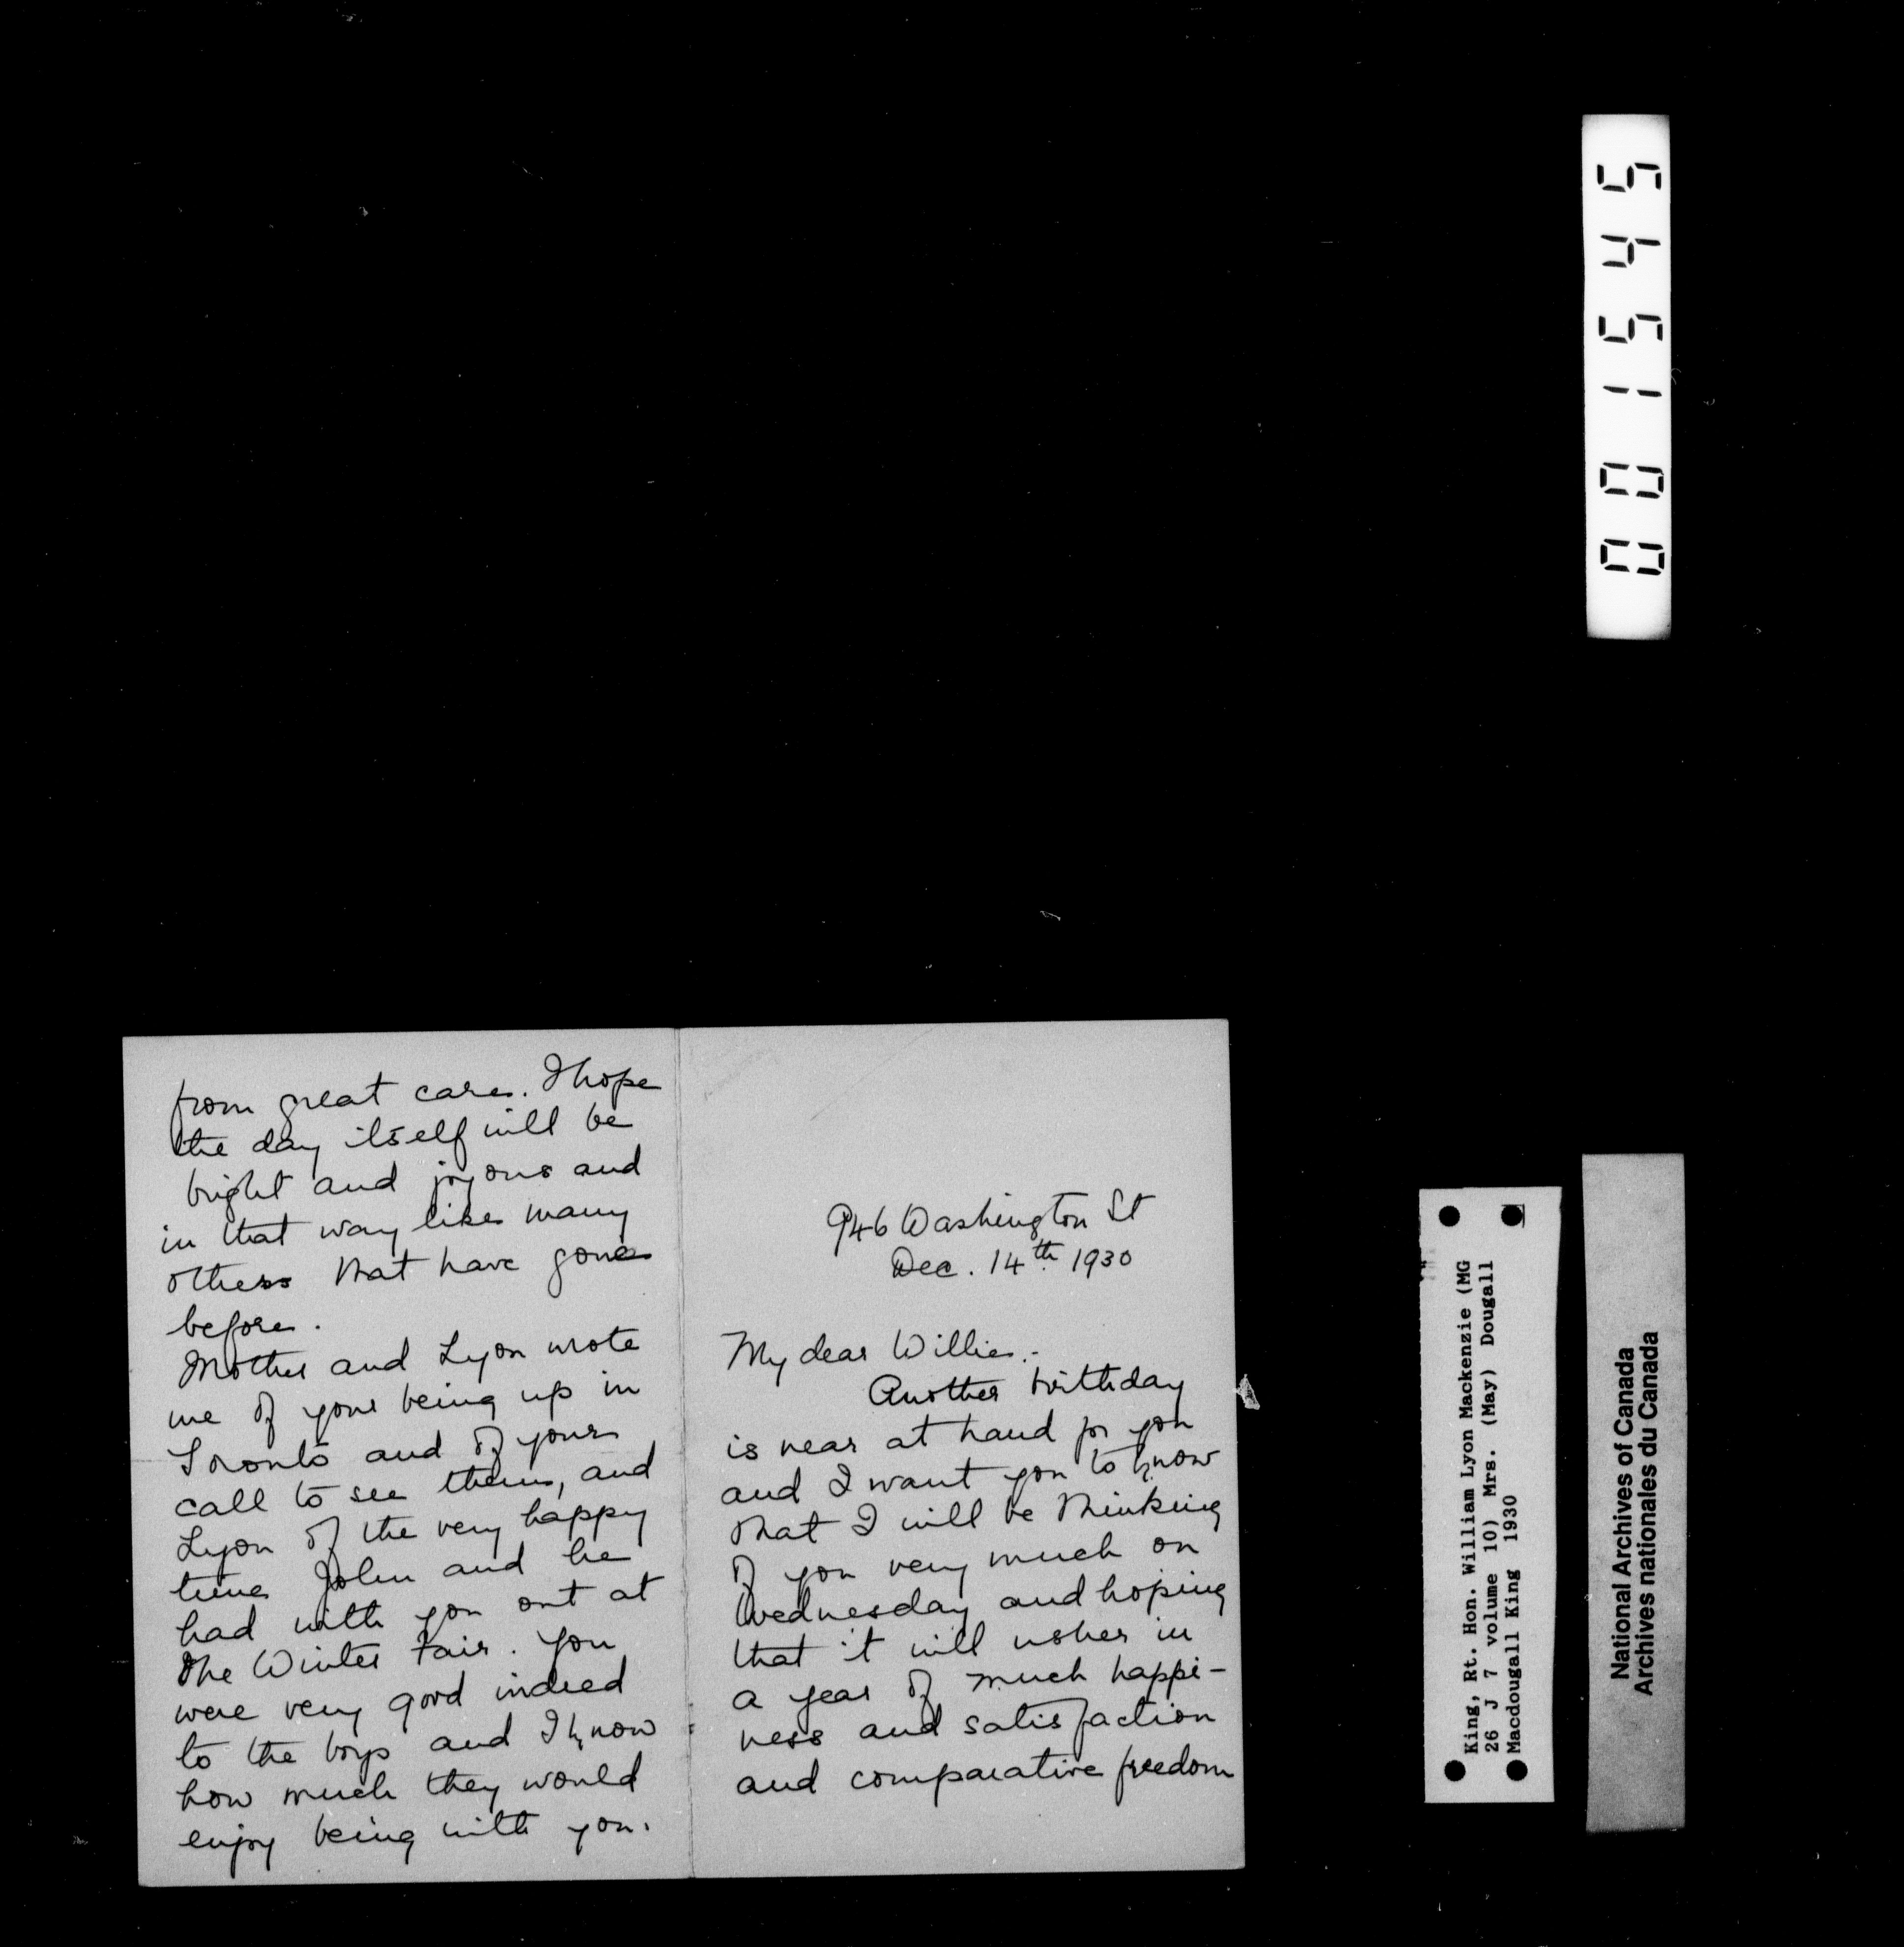 946 Washington St
Dec. 14th 1930
My dear Willie:-
Another birthday
is near at hand for you
and I want you to know
that I will be thinking
of you very much on
Wednesday and hoping
that it will usher in
a year of much happi-
ness and satisfaction
and comparative freedom
from great care. I hope
the day itself will be
bright and joyous and
in that way like many
others that have gone
before.
Mother and Lyon wrote
me of your being up in
Toronto and of your
call to see them, and
Lyon of the very happy
time John and he
had with you out at
the Winter Fair. You
were very good indeed
to the boys and I know
how much they would
enjoy being with you.
001545
King, Rt. Hon. William Lyon Mackenzie (MG
26 J 7 volume 10) Mrs. (May) Dougall
Macdougall King 1930
National Archives of Canada
Archives nationales du Canada